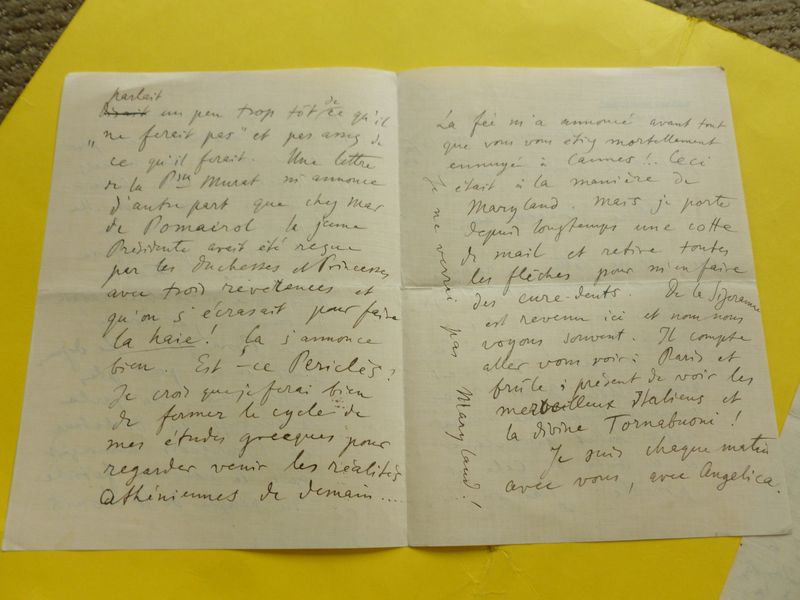 parlait
disait un peu trop tôt de ce qu'il
"ne ferait pas" et pas assez de
ce qu'il ferait. Une lettre
de la Psse Murat m'annonce
d'autre part que chez Mme
de Pomairol la jeune
Présidente avait été reçue
par les Duchesses et Princesses
avec trois révérences et
qu'on s'écrasait pour faire
la haie! Ça s'annonce
bien. Est-ce Periclès?
Je crois que je ferai bien
de fermer le cycle de
mes études grecques pour
regarder venir les réalités
athéniennes de demain....
La fée m'a annoncé avant tout
que vous vous étiez mortellement
ennuyé à Cannes!.. Ceci
était à la manière de
Maryland. Mais je porte
depuis longtemps une cotte
de mail et retire toutes
les flèches pour m'en faire
des cure-dents. De la Sizeranne
est revenu ici et nous nous
voyons souvent. Il compte
aller vous voir à Paris et
brûle à présent de voir les
merveilleux Italiens et
la divine Tornabuoni!
Je suis chaque matin
avec vous, avec Angelica.
Je ne verrai pas Maryland!